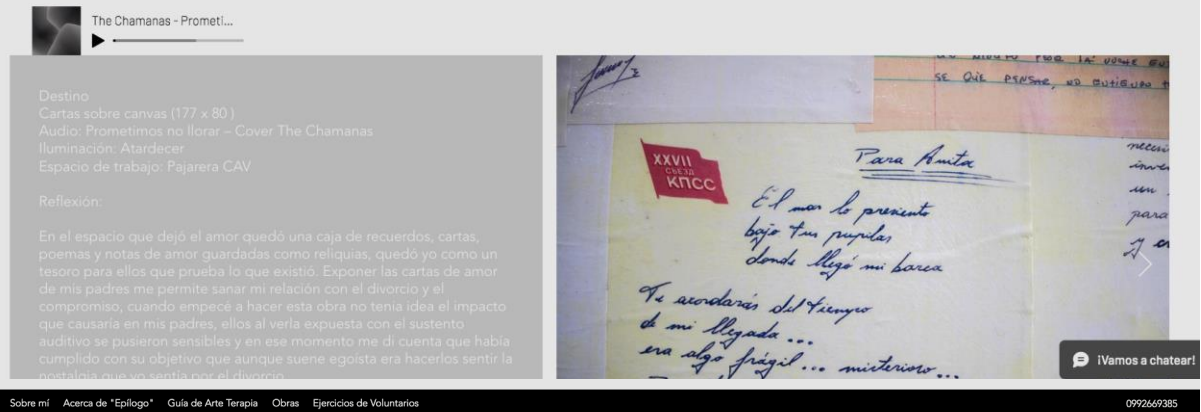 The Chamanas - Prometi...
Destino
Cartas sobre canvas (177 x 80 )
Audio: Prometimos no llorar – Cover The Chamanas
Iluminación: Atardecer
Espacio de trabajo: Pajarera CAV
Reflexión:
En el espacio que dejó el amor quedó una caja de recuerdos, cartas,
poemas y notas de amor guardadas como reliquias, quedó yo como un
tesoro para ellos que prueba lo que existió. Exponer las cartas de amor
de mis padres me permite sanar mi relación con el divorcio y el
compromiso, cuando empecé a hacer esta obra no tenia idea el impacto
que causaría en mis padres, ellos al verla expuesta con el sustento
auditivo se pusieron sensibles y en ese momento me di cuenta que había
cumplido con su objetivo que aunque suene egoísta era hacerlos sentir la
nostalgia que yo sentía por el divorcio
POR LA
SE QUE PENSAR, NO ENTIENDO
XXVII
СЪЕЗД
КПСС
Para Anita
El mar lo presiento
bajo tus pupilas
donde llegó mi barca
Te acordarás del tiempo
de mi llegada...
era algo frágil... misterioso...
un
para
¡Vamos a chatear!
Sobre mí
Acerca de "Epílogo"
Guía de Arte Terapia
Obras
Ejercicios de Voluntarios
0992669385